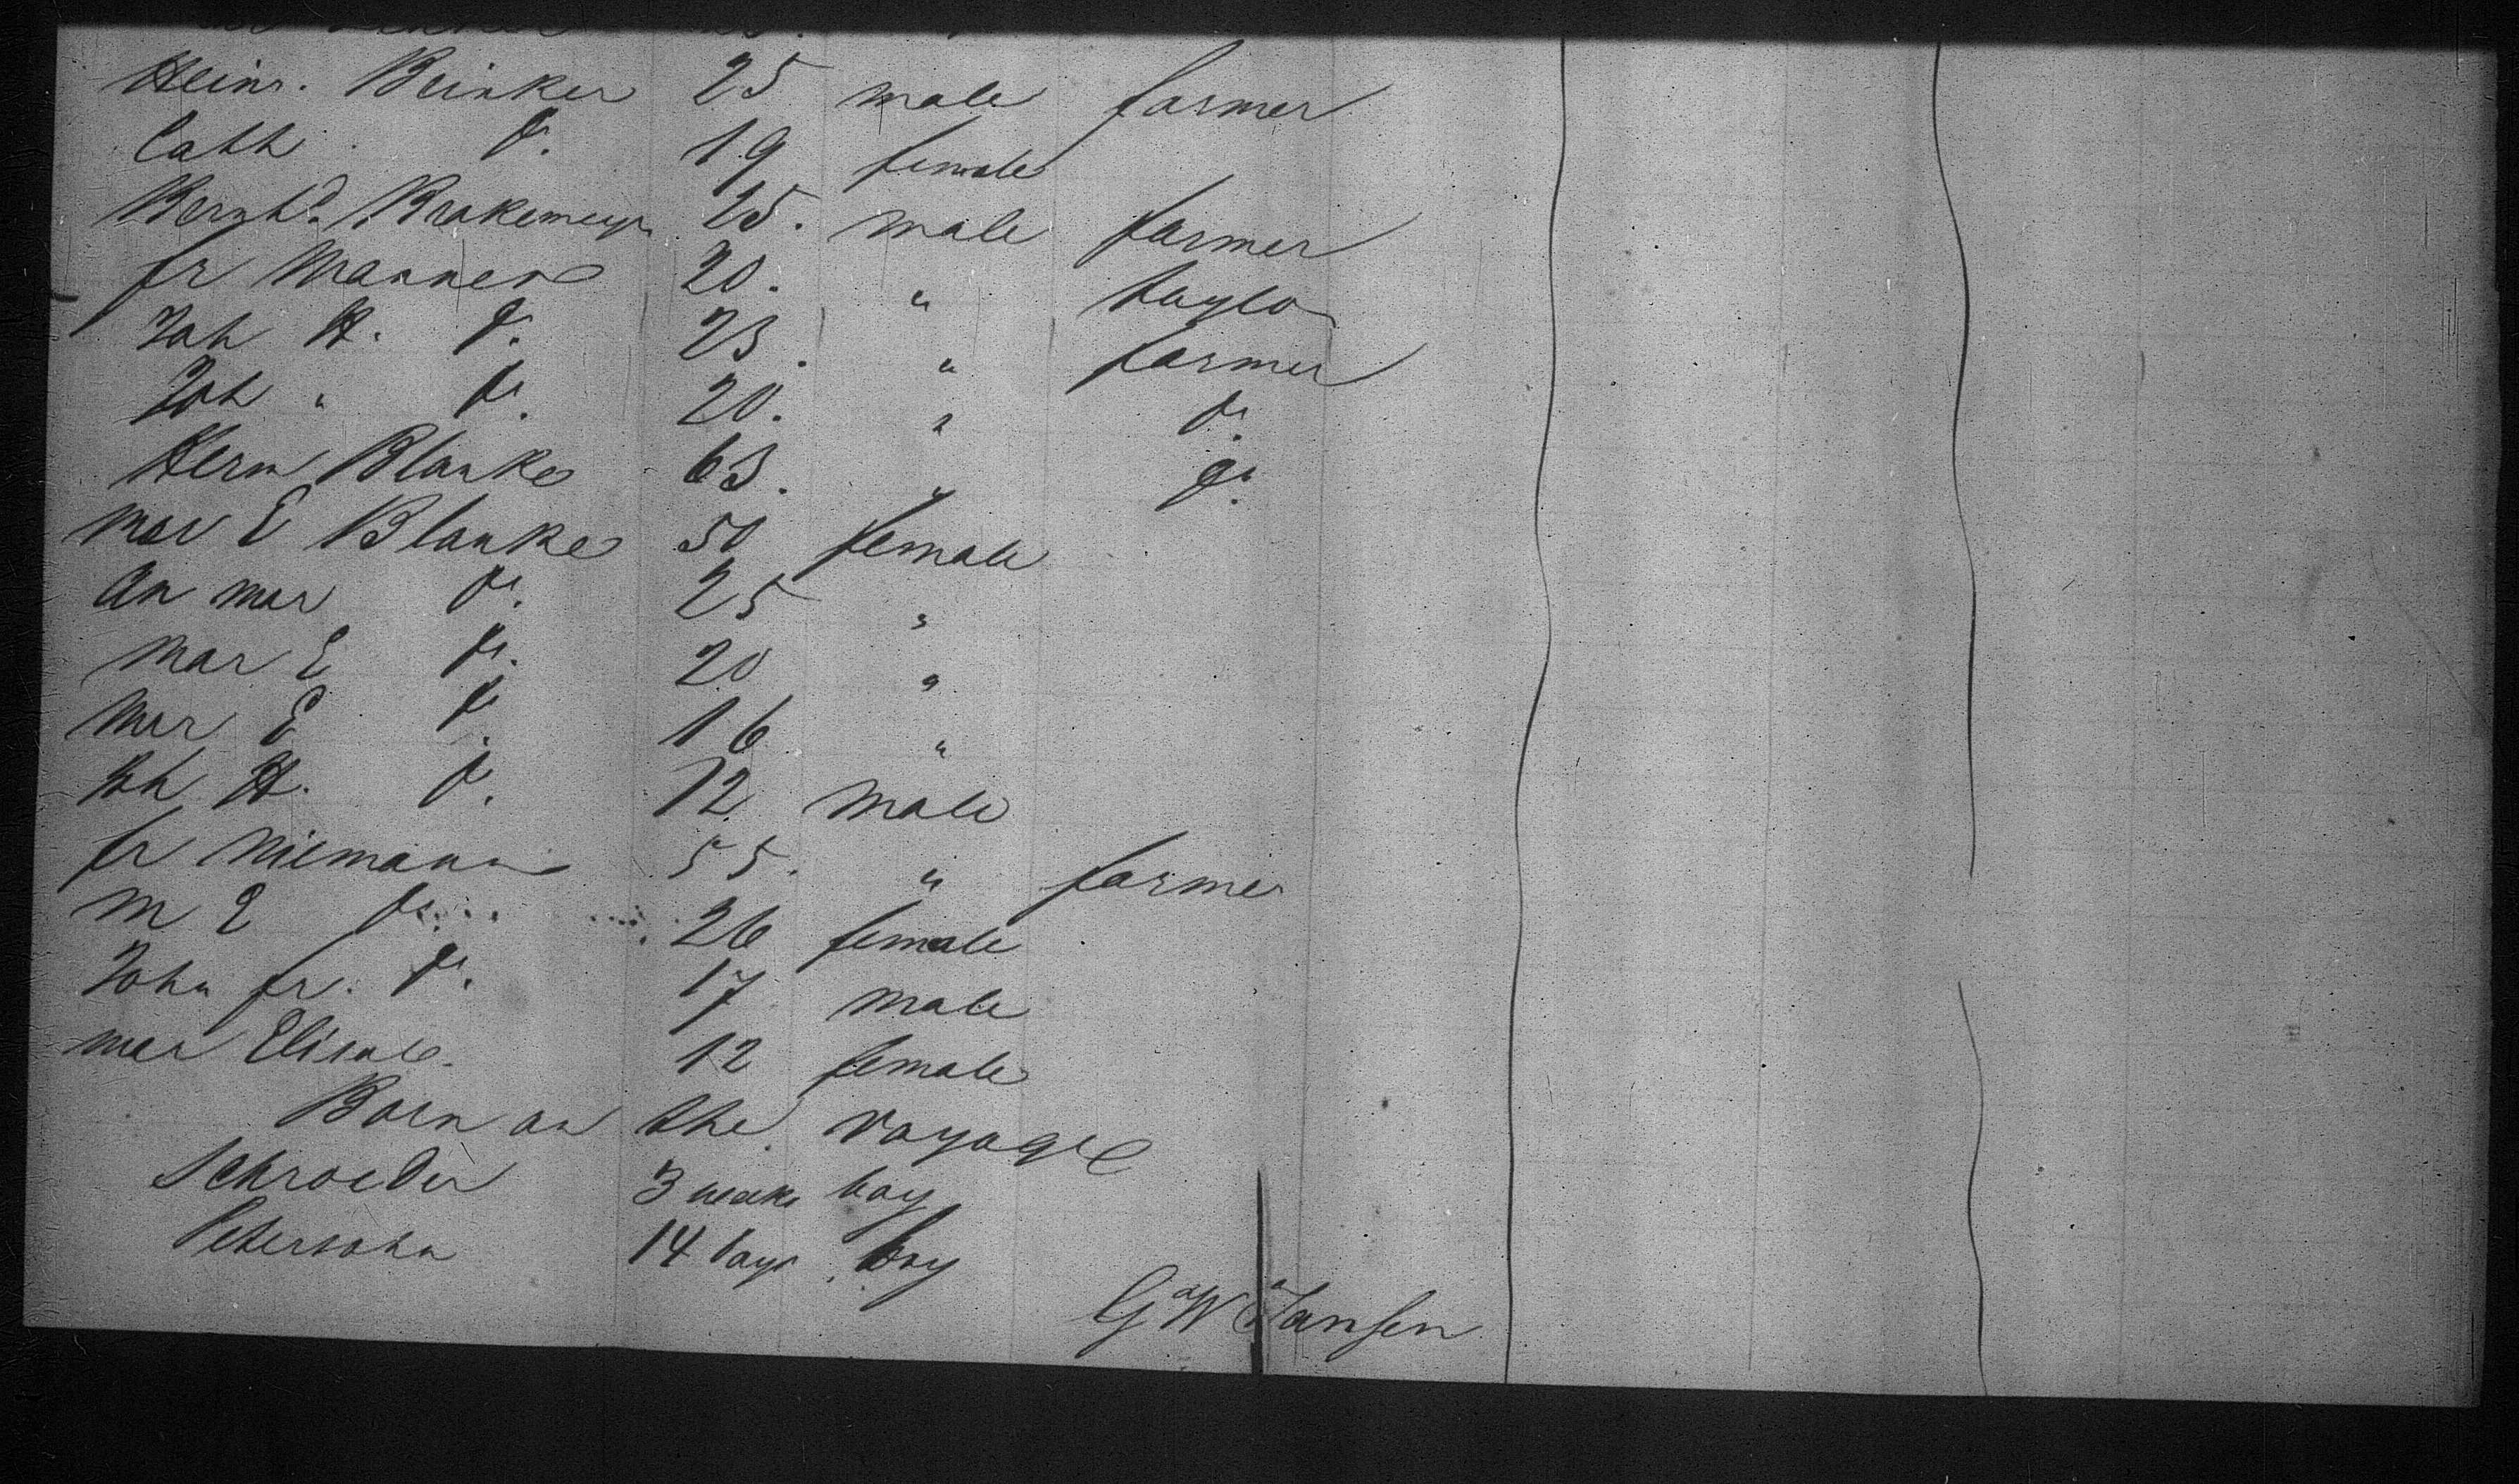 Heinr. Brinker 25 male farmer
Cath do. 19 female
Bernhd. Brakemeyr 25. male farmer
fr Mannen 20. " taylor
Joh H. do. 23. " farmer
Joh " do. 20. " do.
Herm Blanke 63. " do.
Mar E Blanke 50 female
An Mar do. 25 "
Mar E do. 20 "
Mar E do. 16 "
H. do. 12 male
fr Niemann 55. " farmer
M E do. 26 female
John fr. do. 17 male
Mar Elisab. 12 female
Born on the voyage
Schroeder 3 weeks boy
Petersohn 14 days boy
G W Jansen